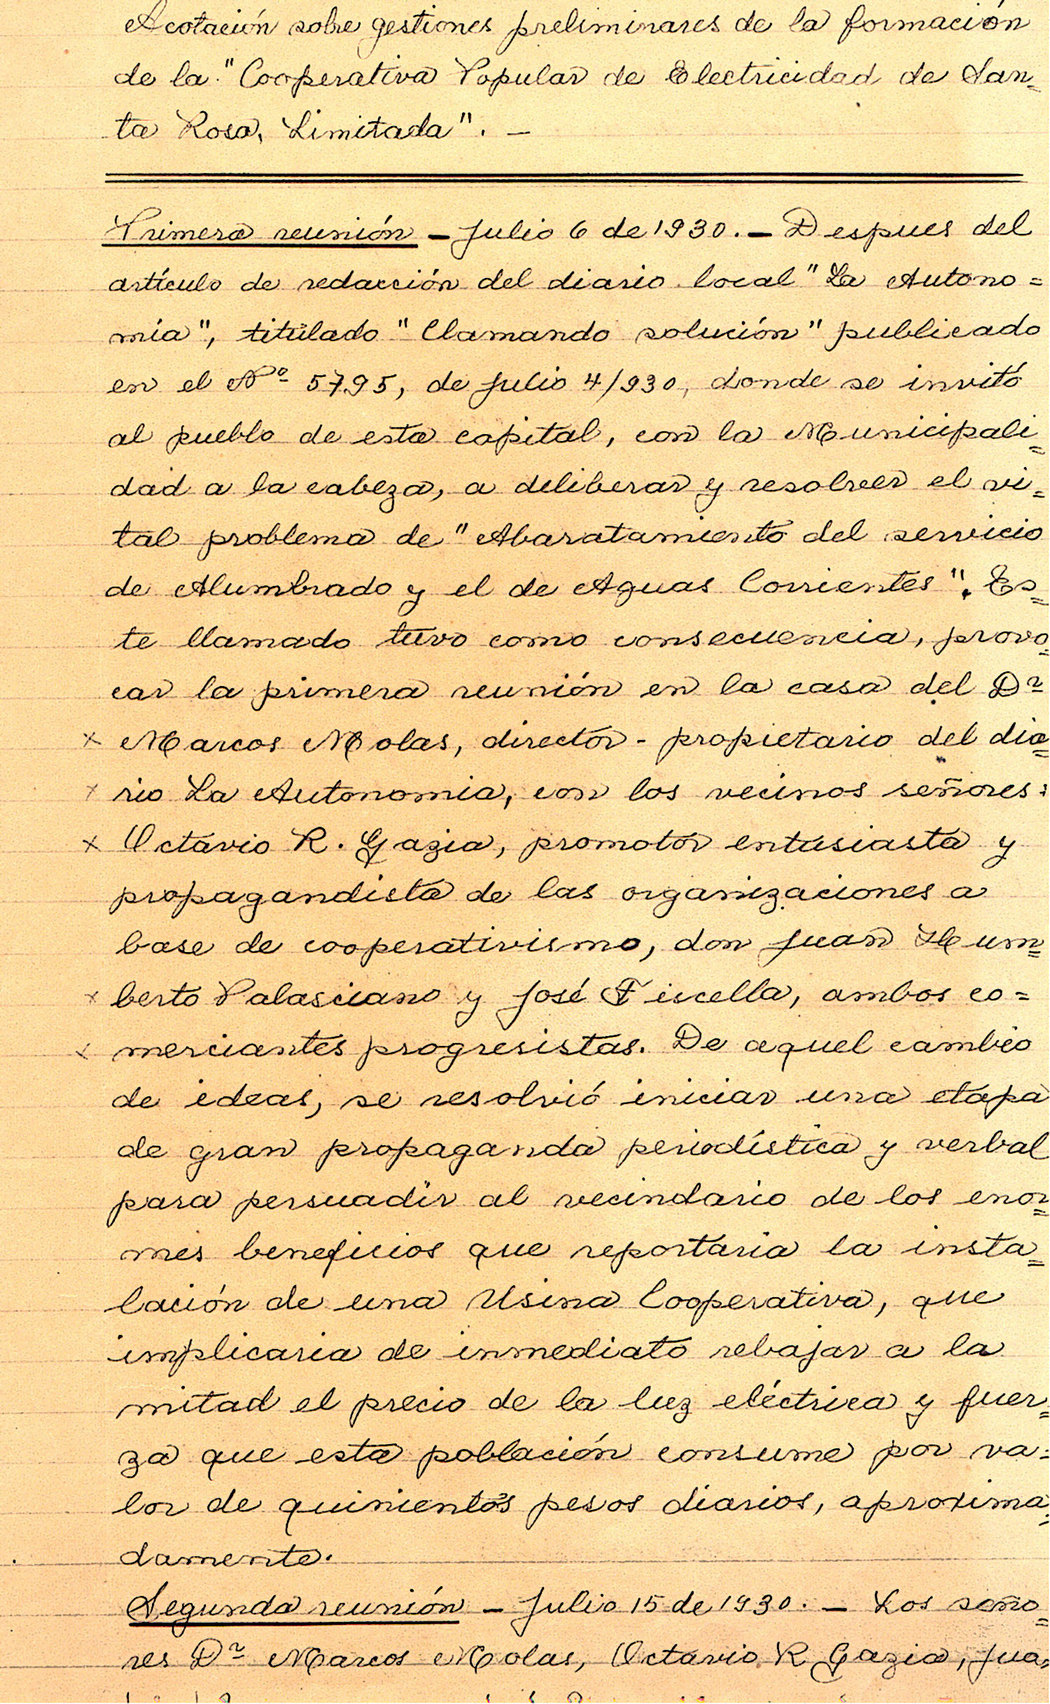 Acotación sobre gestiones preliminares de la formación
de la "Cooperativa Popular de Electricidad de San=
ta Rosa, Limitada". —
Primera reunión — Julio 6 de 1930. — Despues del
artículo de redacción del diario local "La Autono=
mía", titulado "Clamando solución" publicado
en el Nº 5795, de julio 4/930, donde se invitó
al pueblo de esta capital, con la Municipali=
dad a la cabeza, a deliberar y resolver el vi=
tal problema de "Abaratamiento del servicio
de Alumbrado y el de Aguas Corrientes". Es=
te llamado tuvo como consecuencia, provo=
car la primera reunión en la casa del Dr
x Marcos Molas, director - propietario del dia=
x rio La Autonomia, con los vecinos señores:
x Octavio R. Gazia, promotor entusiasta y
propagandista de las organizaciones a
base de cooperativismo, don Juan Hum=
x berto Palasciano y José Fiscella, ambos co=
x merciantes progresistas. De aquel cambio
de ideas, se resolvió iniciar una etapa
de gran propaganda periodística y verbal
para persuadir al vecindario de los enor=
mes beneficios que reportaria la insta=
lación de una Usina Cooperativa, que
implicaria de inmediato rebajar a la
mitad el precio de la luz eléctrica y fuer=
za que esta población consume por va=
lor de quinientos pesos diarios, aproxima=
damente.
Segunda reunión — Julio 15 de 1930. — Los seño=
res Dr Marcos Molas, Octavio R Gazia, Jua